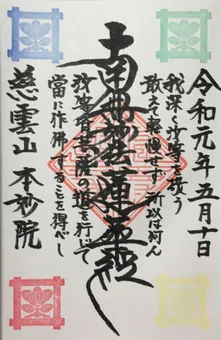 令和元年五月十日
我深く汝等を敬う
敢えて軽慢せず所以は何ん
南無妙法蓮華経
汝等皆菩薩の道を行じて
當に作佛することを得べし
慈雲山 本妙院